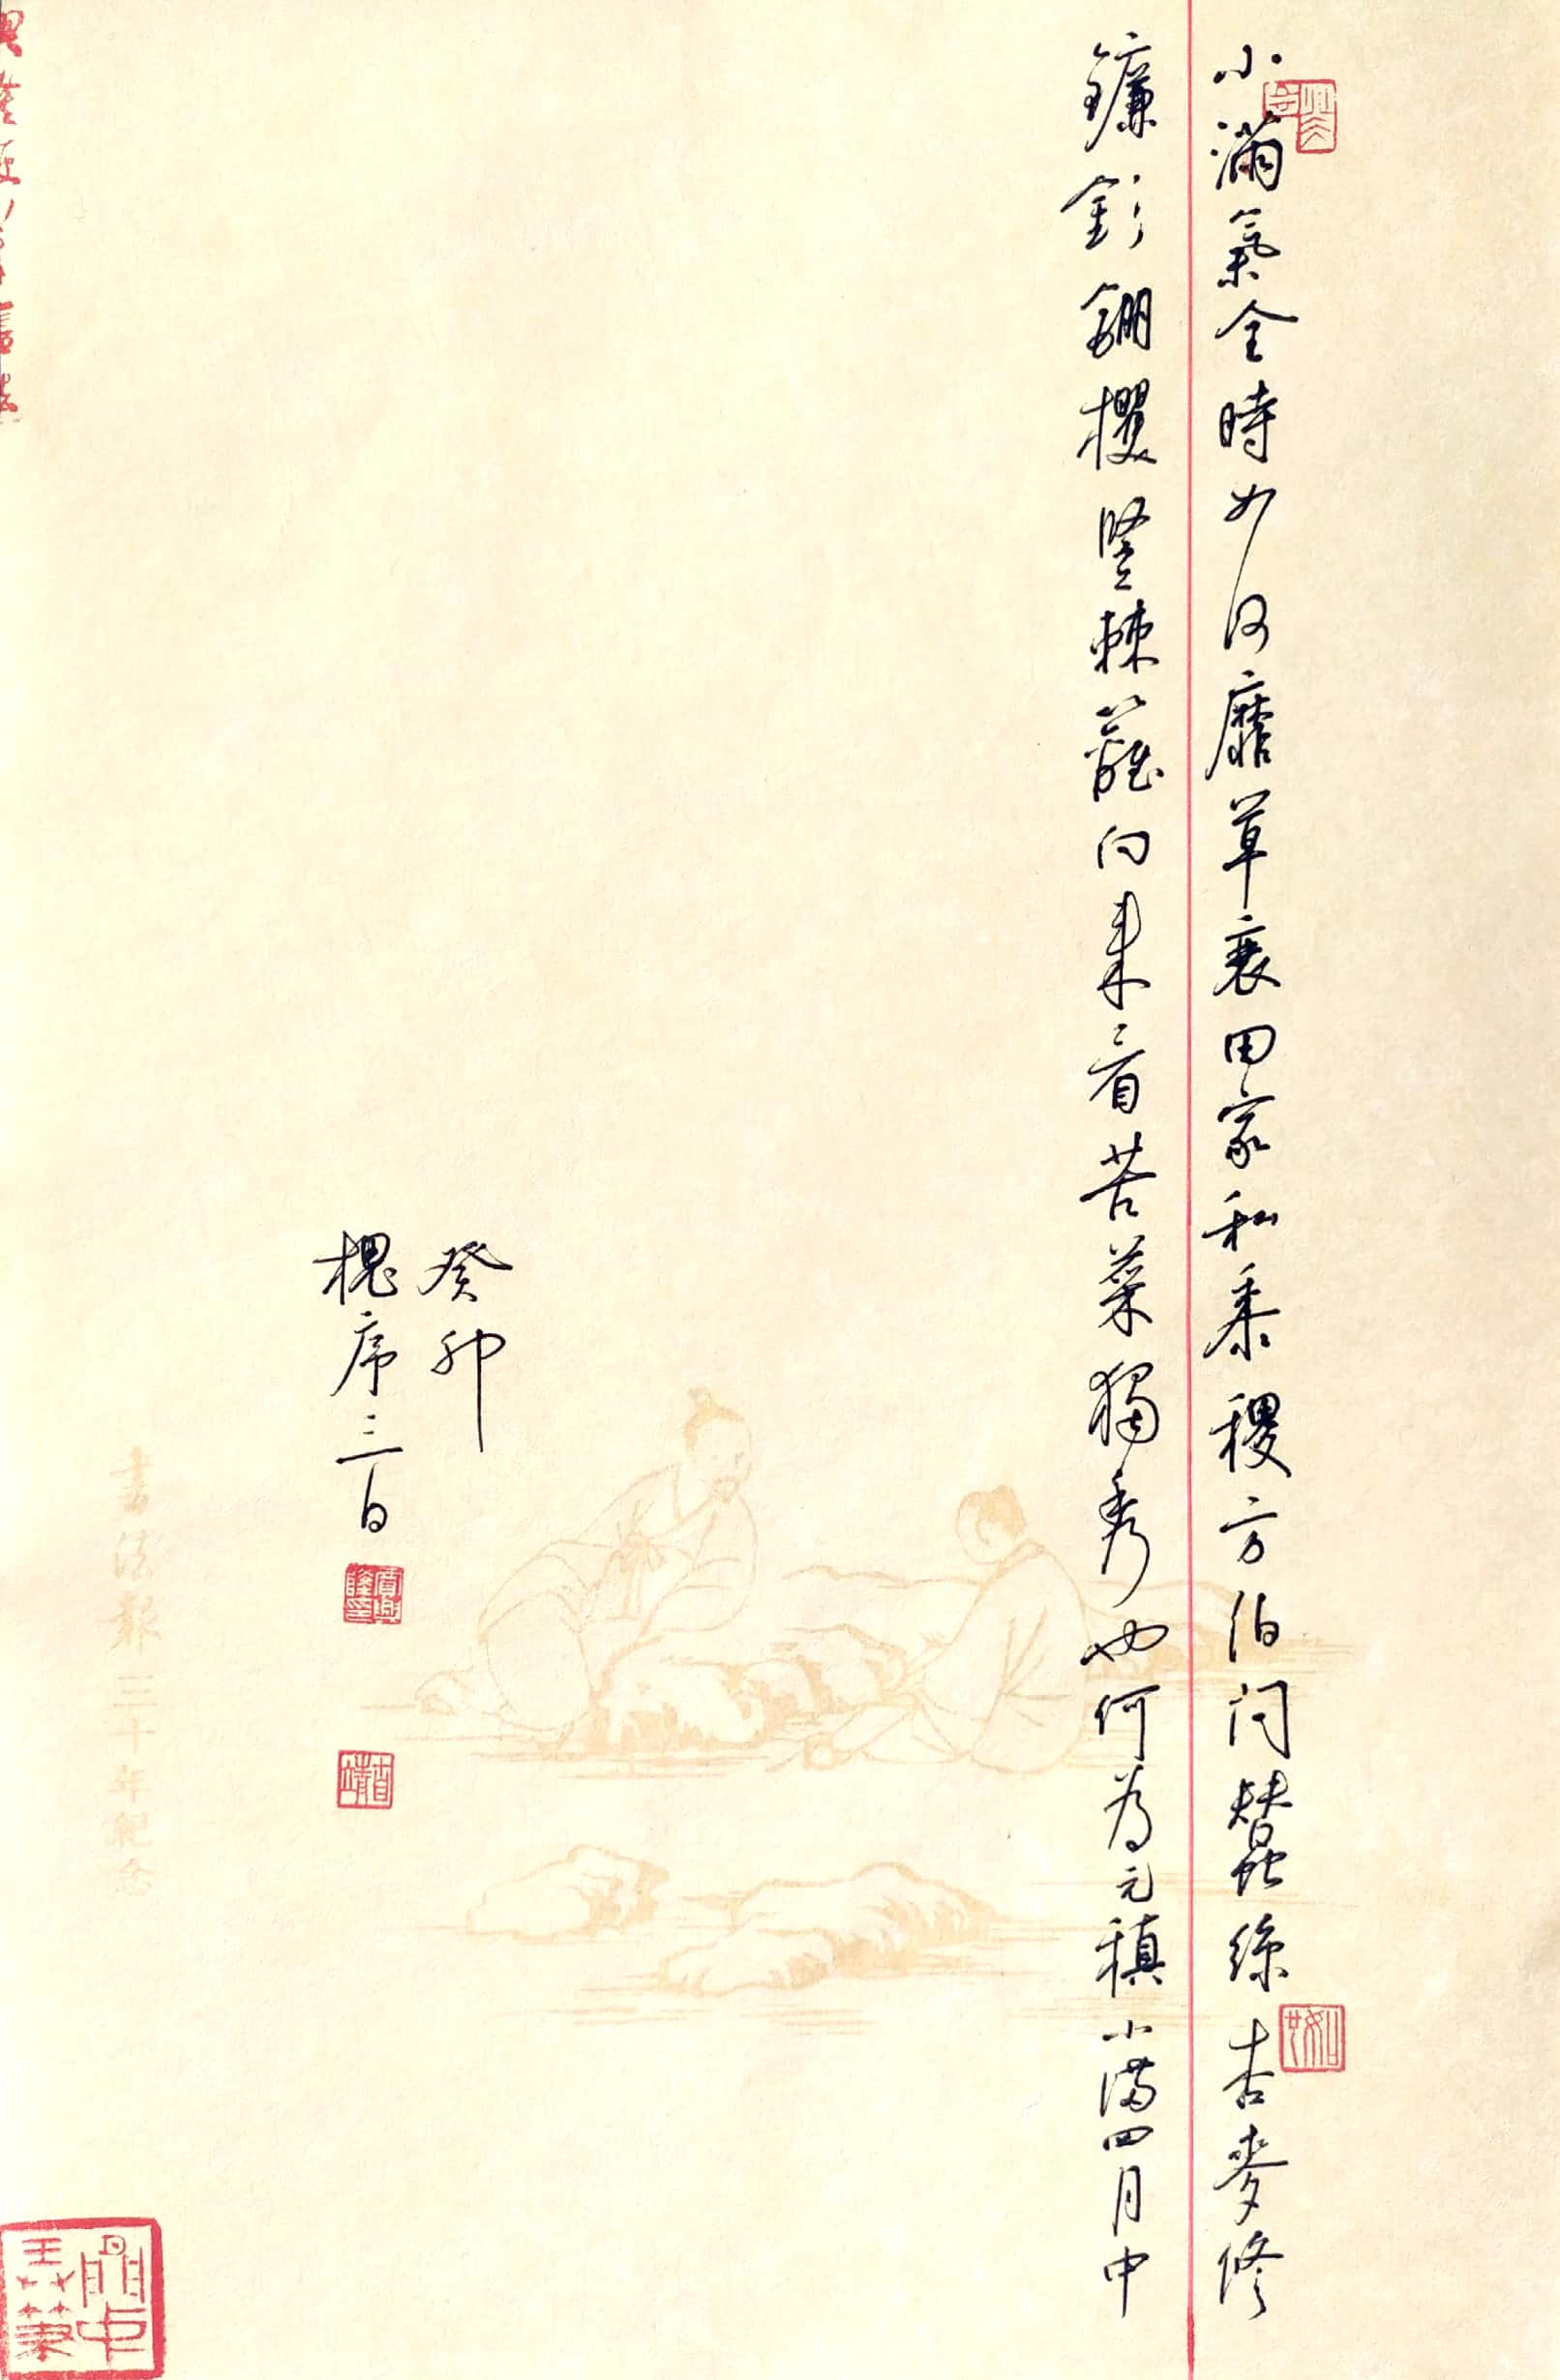 小滿氣全時如何靡草衰田家私黍稷方伯問蠶絲杏麥修
鐮釤錋欔竪棘籬向來看苦菜獨秀也何為元稹小滿四月中
癸卯
槐序三日
書法報三十年紀念